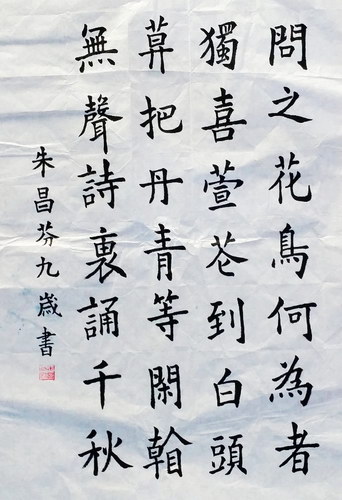 問之花鳥何為者
獨喜萱花到白頭
莫把丹青等閑翰
無聲詩裏誦千秋
朱昌芬九歲書